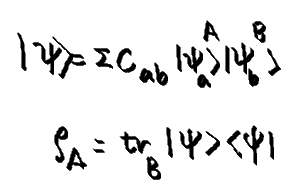 |Ψ⟩ = Σ C_ab |Ψ_a^A⟩ |Ψ_b^B⟩
ρ_A = tr_B |Ψ⟩⟨Ψ|